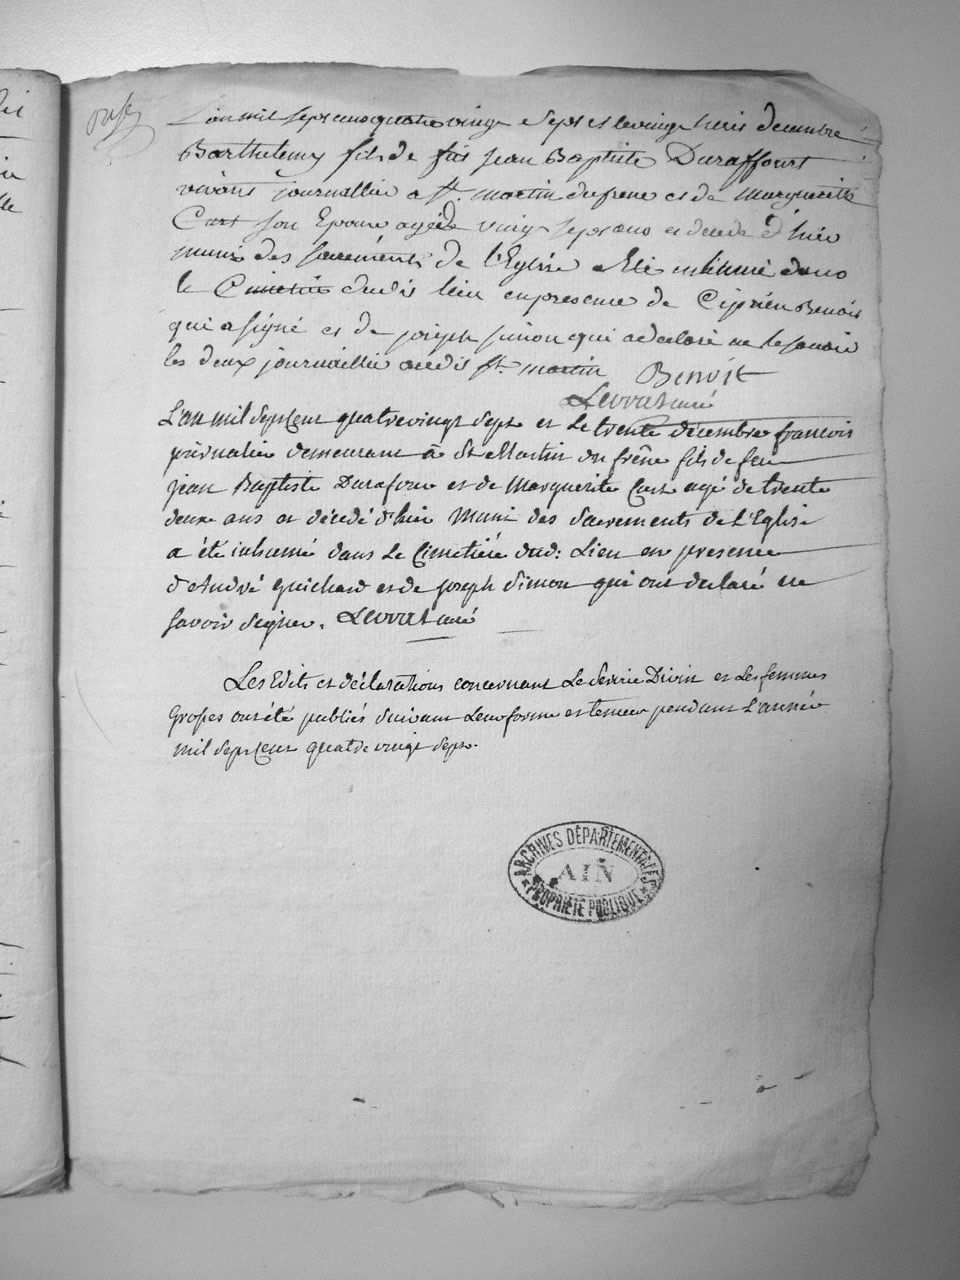 L'an mil sept cens quatre vingt sept et le vingt trois decembre
Barthelemy fils de feu Jean Baptiste Duraffourt
vivant journallier a St. martin dufrene et de Marguerite
Cart son Epouse agé de vingt sept ans et decedé d'hier
muni des sacrements de l'Eglise a Eté inhumé dans
le Cimetiere dudit lieu en presence de Ciprien Benoit
qui a signé et de joseph simon qui a declaré ne le savoir
les deux journaillier audit St. martin Benoit
Levrat curé
L'an mil sept Cent quatrevingt sept et Le trente décembre francois
journalier demeurant à St Martin du frêne fils de feu
jean Baptiste Durafour et de Marguerite Cart agé de trente
deux ans et décédé d'hier Muni des Sacrements de L'Eglise
a été inhumé dans Le Cimetière dud: Lieu en presence
d'André Guichard et de joseph Simon qui ont declaré ne
savoir Signer. Levrat curé
Les Edits et déclarations concernant Le Service Divin et Les femmes
Grosses ont été publiés suivant Leur forme et teneur pendant L'année
Mil Sept Cent quatre vingt Sept.
ARCHIVES DÉPARTEMENTALES
AIN
PROPRIÉTÉ PUBLIQUE